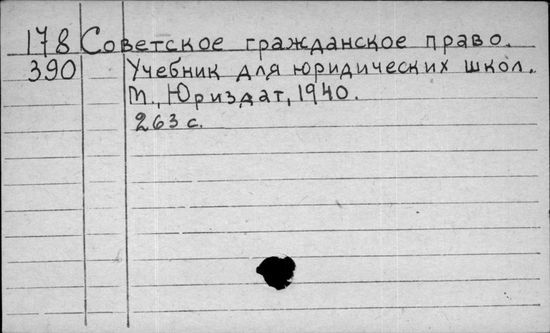 178 Советское гражданское право.
390 Учебник для юридических школ.
М., Юриздат, 1940.
263 с.